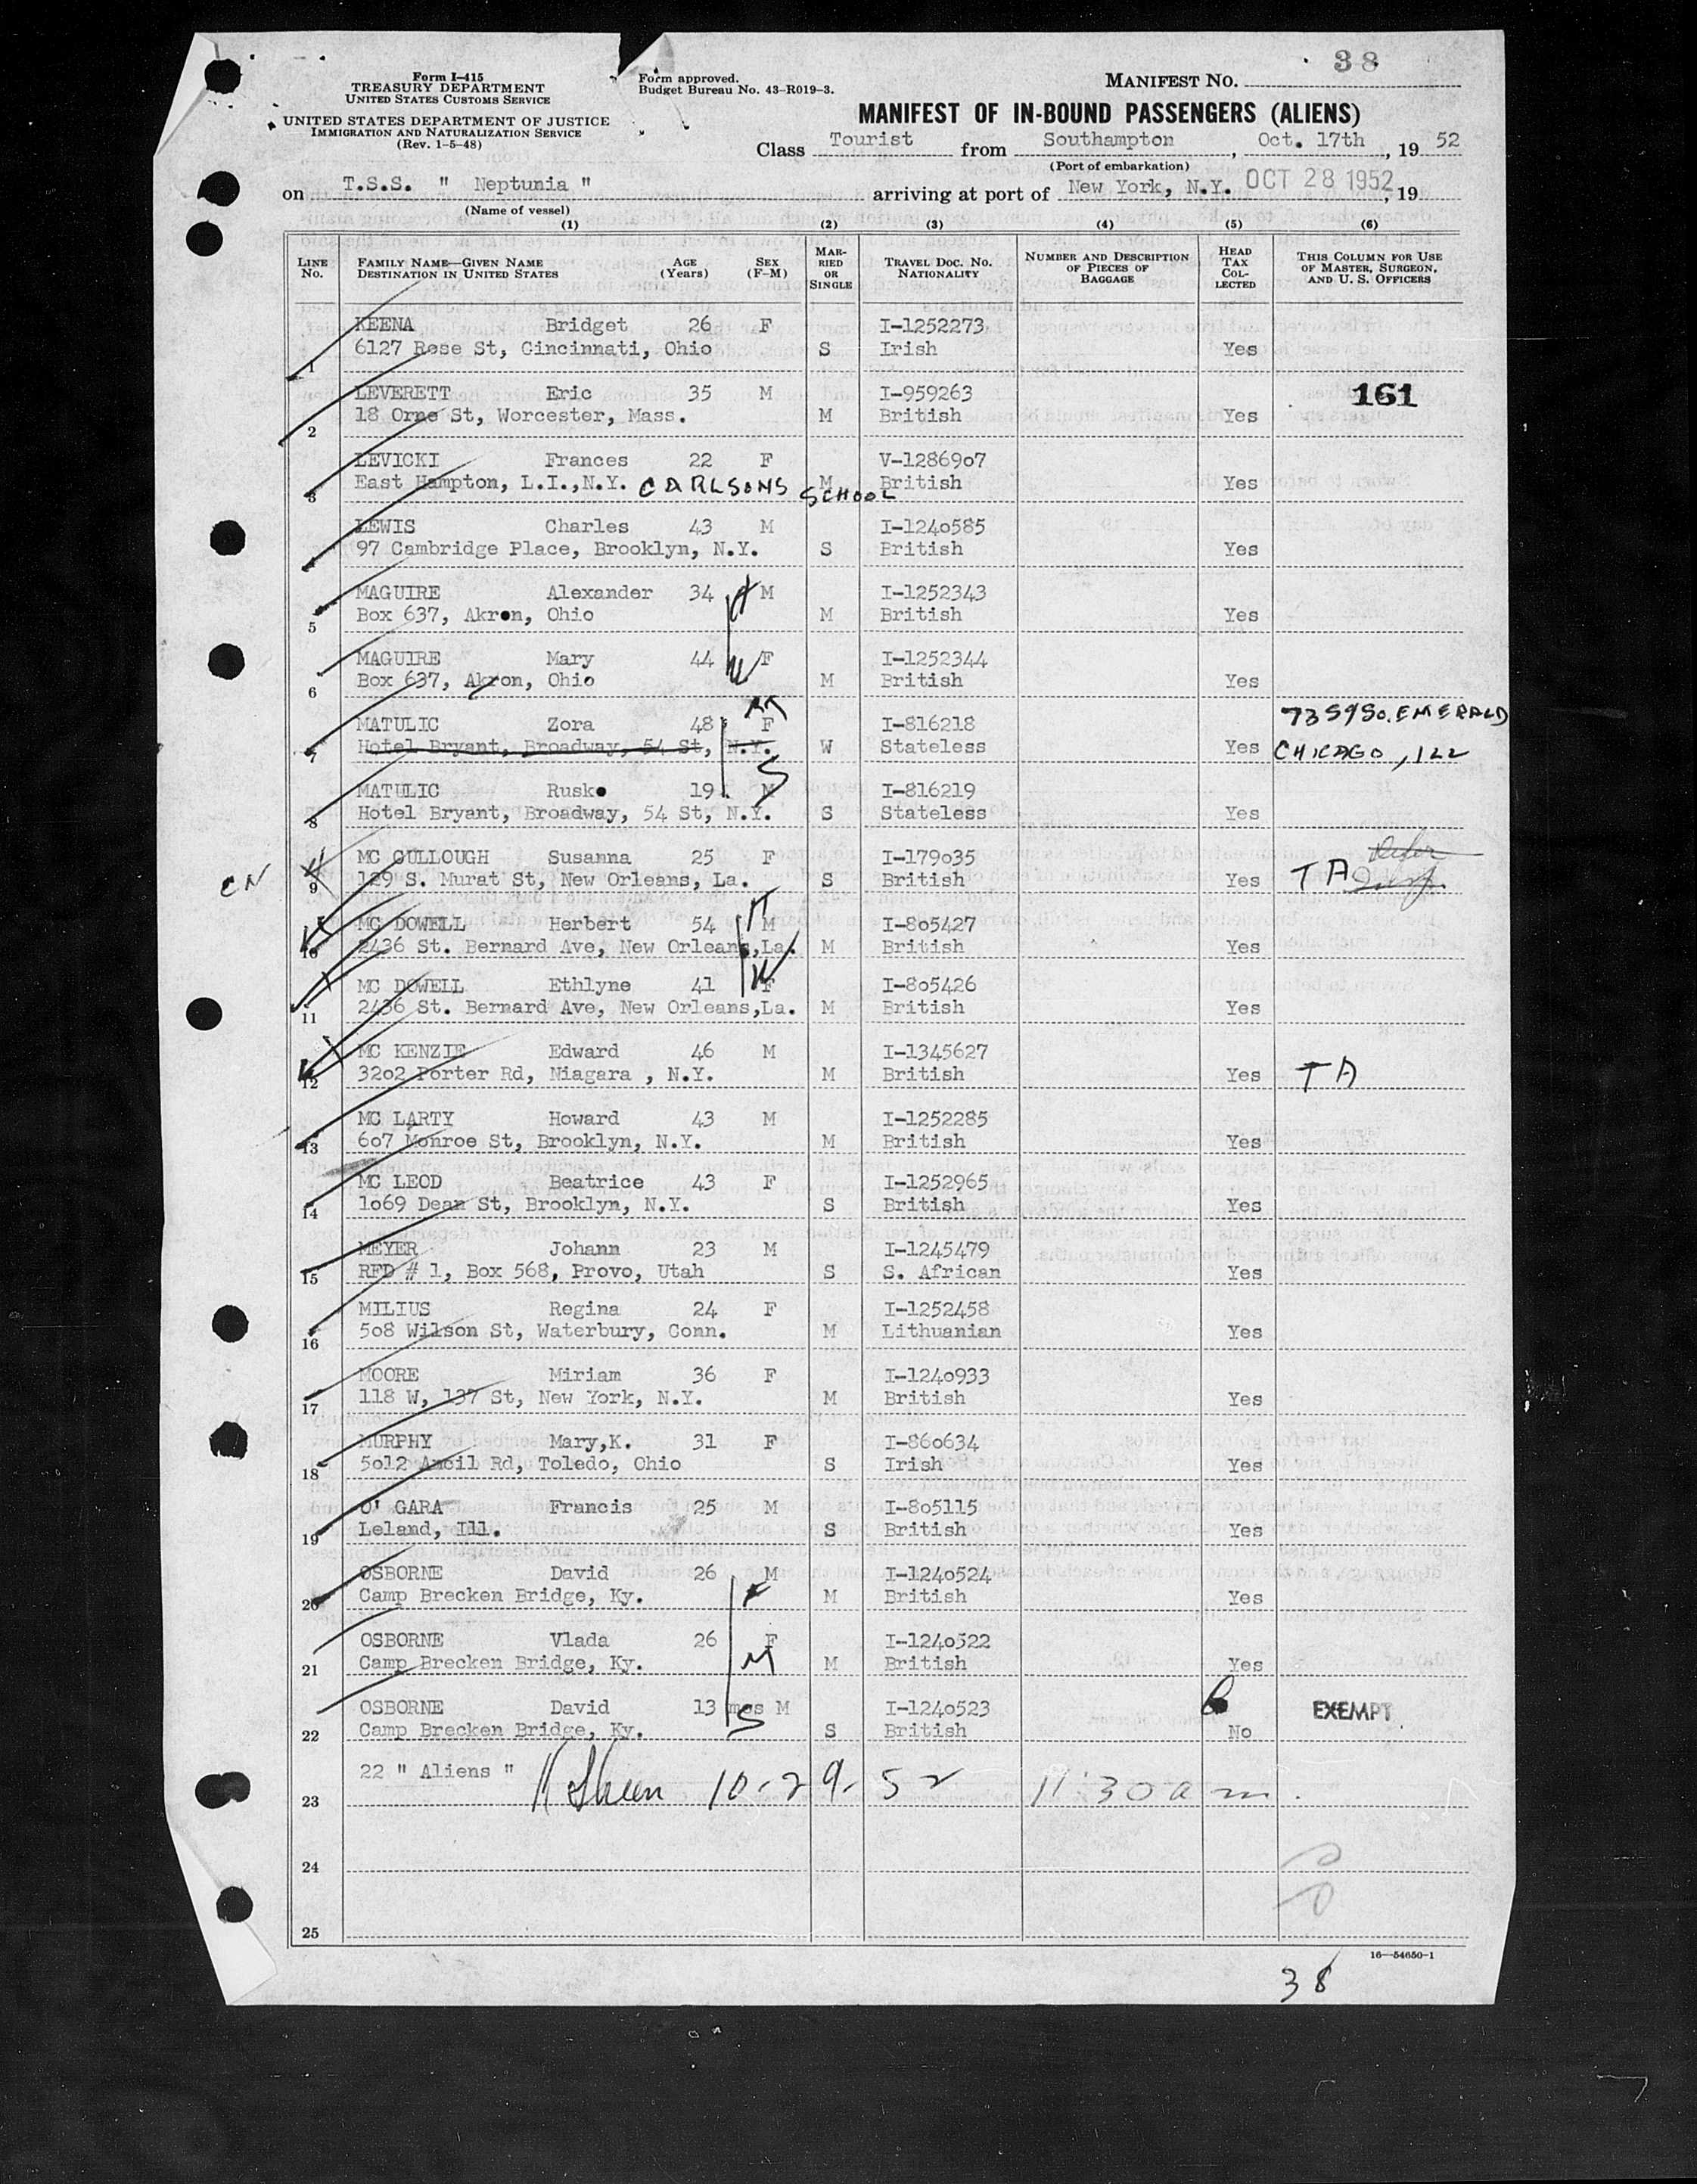 38
Form I-415
TREASURY DEPARTMENT
UNITED STATES CUSTOMS SERVICE
UNITED STATES DEPARTMENT OF JUSTICE
IMMIGRATION AND NATURALIZATION SERVICE
(Rev. 1-5-48)
Form approved.
Budget Bureau No. 43-R019-3.
MANIFEST NO.
MANIFEST OF IN-BOUND PASSENGERS (ALIENS)
Class Tourist from Southampton, Oct. 17th, 19 52
(Port of embarkation)
on T.S.S. " Neptunia " arriving at port of New York, N.Y. OCT 28 1952, 19
(Name of vessel)
(1) (2) (3) (4) (5) (6)
LINE No. FAMILY NAME—GIVEN NAME DESTINATION IN UNITED STATES AGE (Years) SEX (F-M) MARRIED OR SINGLE TRAVEL DOC. NO. NATIONALITY NUMBER AND DESCRIPTION OF PIECES OF BAGGAGE HEAD TAX COLLECTED THIS COLUMN FOR USE OF MASTER, SURGEON, AND U. S. OFFICERS
KEENA Bridget 26 F I-1252273
1 6127 Rose St, Cincinnati, Ohio S Irish Yes
LEVERETT Eric 35 M I-959263 161
2 18 Orne St, Worcester, Mass. M British Yes
LEVICKI Frances 22 F V-1286907
3 East Hampton, L.I.,N.Y. CARLSONS SCHOOL M British Yes
LEWIS Charles 43 M I-1240585
4 97 Cambridge Place, Brooklyn, N.Y. S British Yes
MAGUIRE Alexander 34 H M I-1252343
5 Box 637, Akron, Ohio M British Yes
MAGUIRE Mary 44 W F I-1252344
6 Box 637, Akron, Ohio M British Yes
MATULIC Zora 48 M F I-816218 7359 SO. EMERALD
7 Hotel Bryant, Broadway, 54 St, N.Y. W Stateless Yes CHICAGO, ILL
MATULIC Rusko 19 S M I-816219
8 Hotel Bryant, Broadway, 54 St, N.Y. S Stateless Yes
MC CULLOUGH Susanna 25 F I-179035
CN 9 129 S. Murat St, New Orleans, La. S British Yes TA
MC DOWELL Herbert 54 H M I-805427
10 2436 St. Bernard Ave, New Orleans,La. M British Yes
MC DOWELL Ethlyne 41 W F I-805426
11 2436 St. Bernard Ave, New Orleans,La. M British Yes
MC KENZIE Edward 46 M I-1345627
12 3202 Porter Rd, Niagara , N.Y. M British Yes TA
MC LARTY Howard 43 M I-1252285
13 607 Monroe St, Brooklyn, N.Y. M British Yes
MC LEOD Beatrice 43 F I-1252965
14 1069 Dean St, Brooklyn, N.Y. S British Yes
MEYER Johann 23 M I-1245479
15 RFD # 1, Box 568, Provo, Utah S S. African Yes
MILIUS Regina 24 F I-1252458
16 508 Wilson St, Waterbury, Conn. M Lithuanian Yes
MOORE Miriam 36 F I-1240933
17 118 W, 137 St, New York, N.Y. M British Yes
MURPHY Mary,K. 31 F I-860634
18 5012 Ancil Rd, Toledo, Ohio S Irish Yes
O' GARA Francis 25 M I-805115
19 Leland, Ill. S British Yes
OSBORNE David 26 M I-1240524
20 Camp Brecken Bridge, Ky. F M British Yes
OSBORNE Vlada 26 F I-1240522
21 Camp Brecken Bridge, Ky. M M British Yes
OSBORNE David 13 mos M I-1240523 EXEMPT
22 Camp Brecken Bridge, Ky. S S British No
22 " Aliens " 10-29-52 11:30 am.
23
24
25
16—54650-1
38